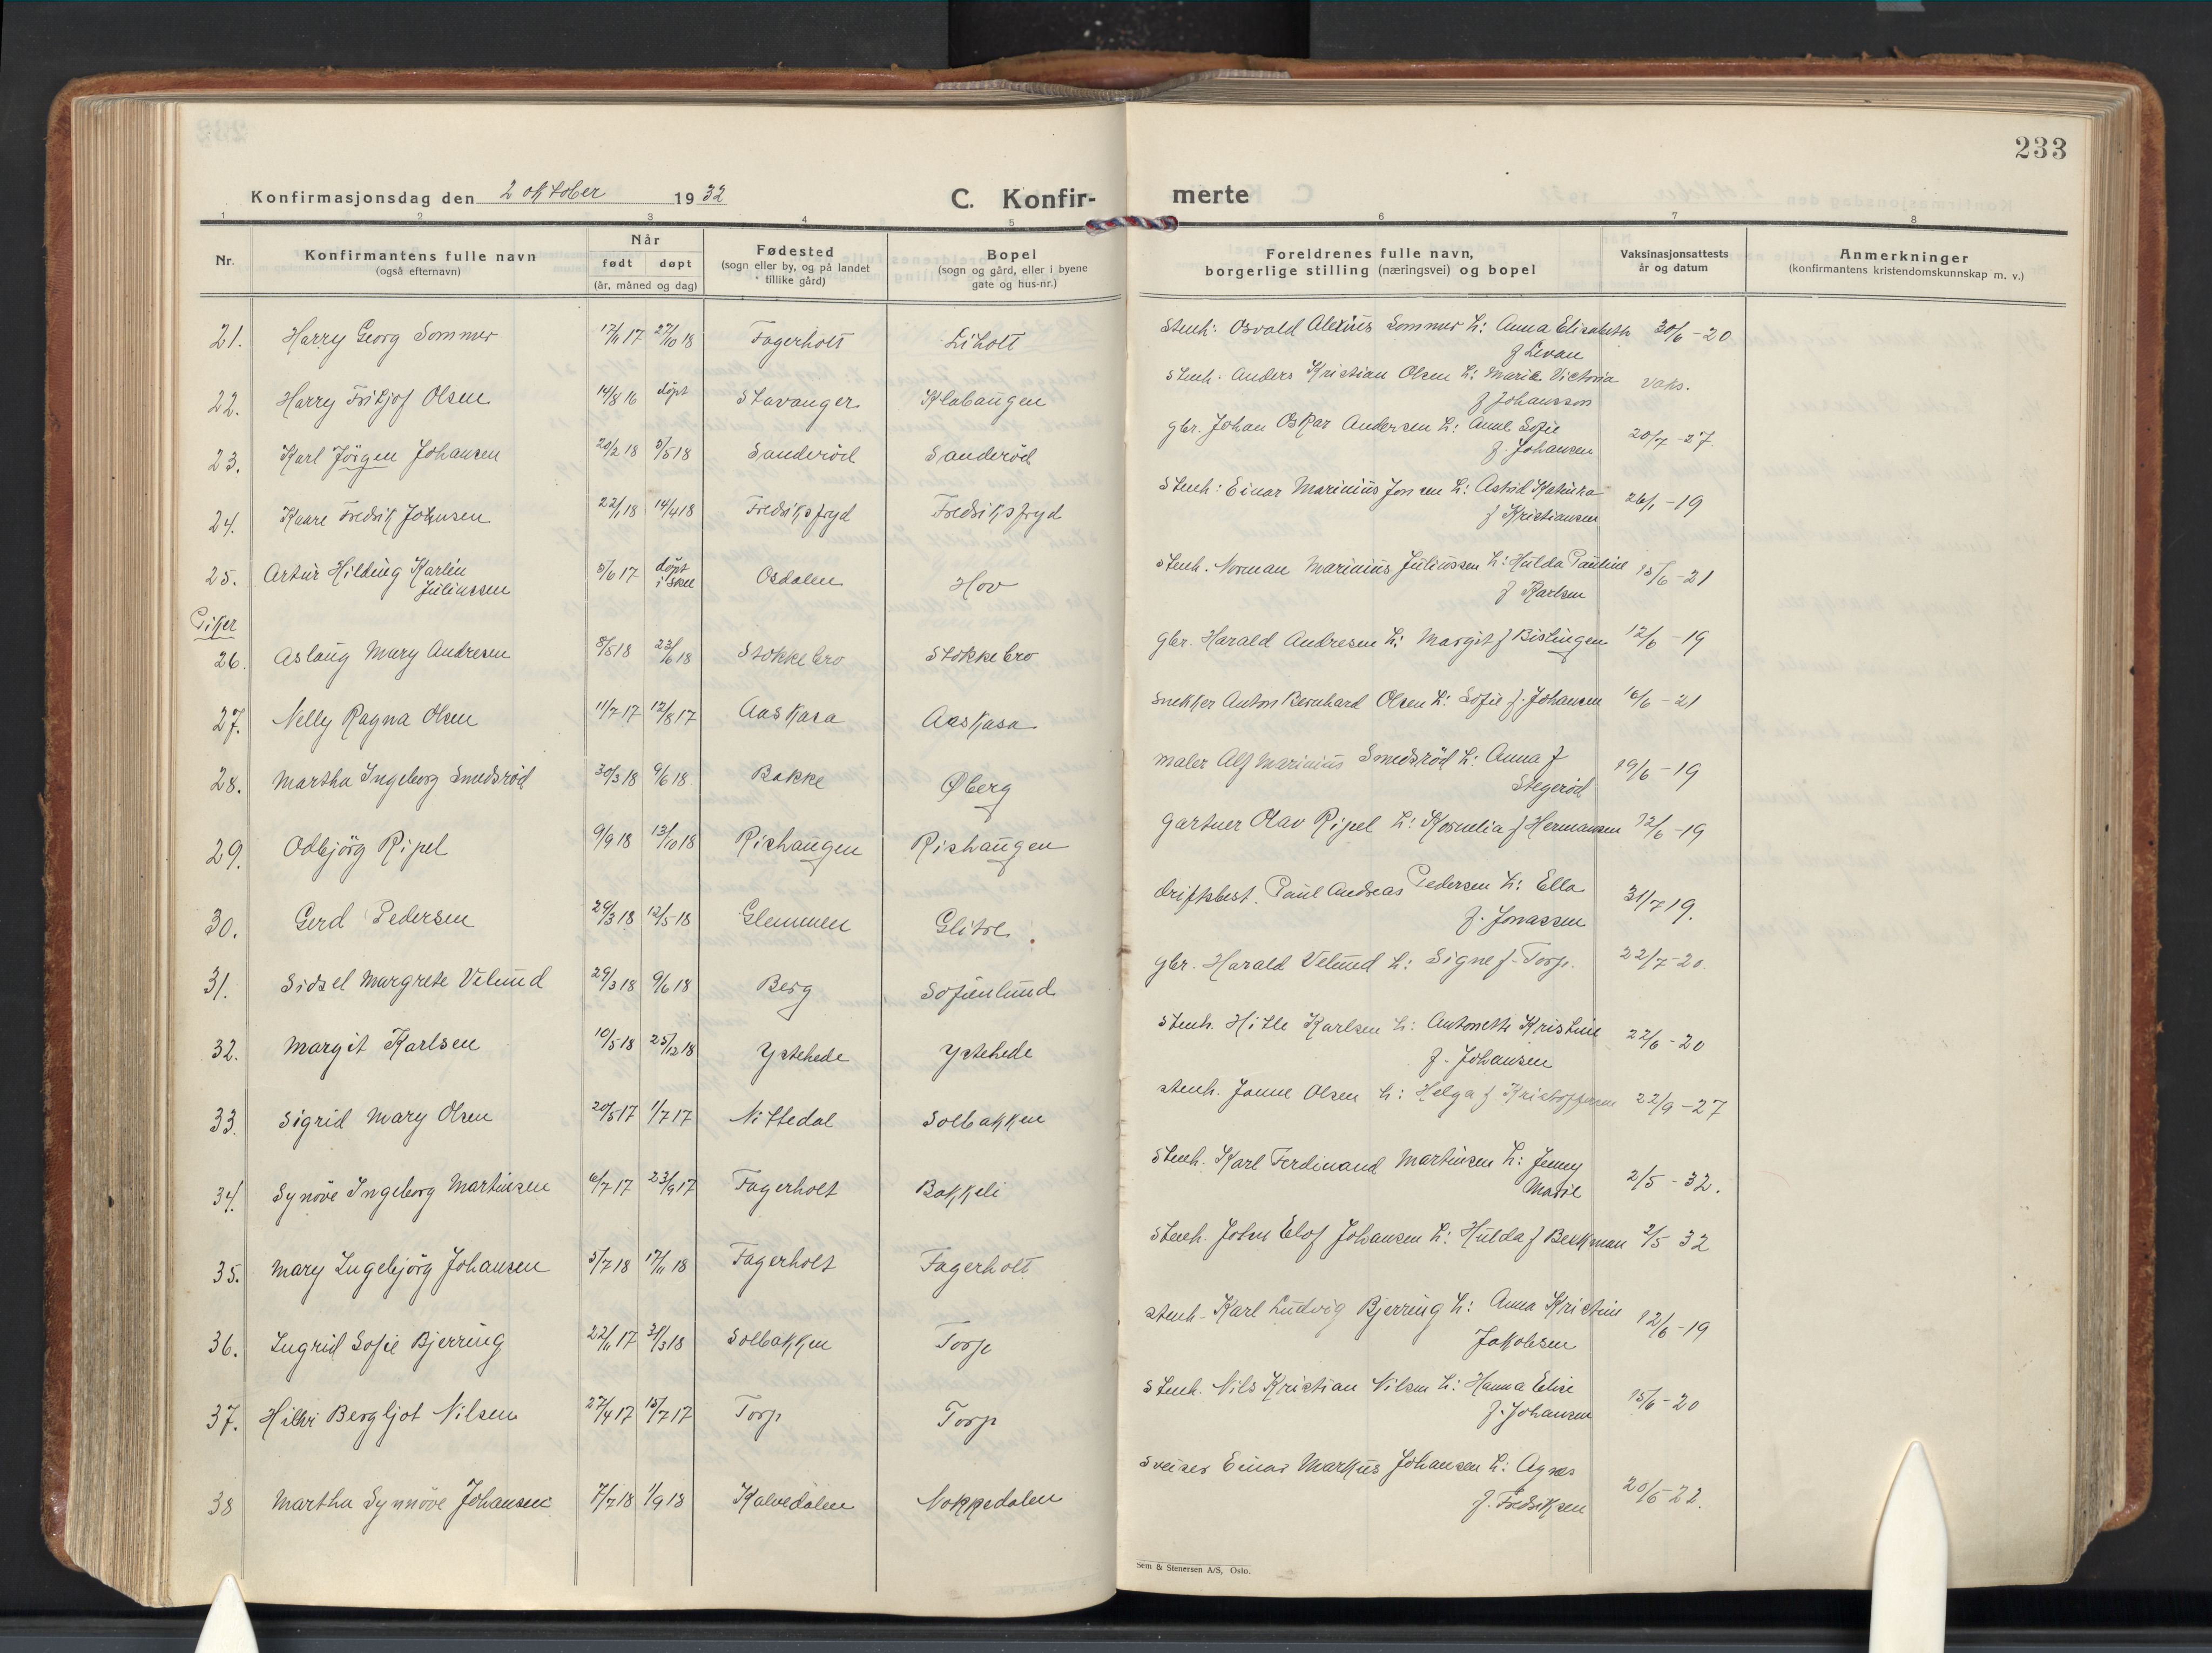 233
Konfirmasjonsdag den 2 oktober 1932
C. Konfirmerte
1 2 3 4 5 6 7 8
Nr.
Konfirmantens fulle navn
(også efternavn)
Når
født døpt
(år, måned og dag)
Fødested
(sogn eller by, og på landet
tillike gård)
Bopel
(sogn og gård, eller i byene
gate og hus-nr.)
Foreldrenes fulle navn,
borgerlige stilling (næringsvei) og bopel
Vaksinasjonsattests
år og datum
Anmerkninger
(konfirmantens kristendomskunnskap m. v.)
21. Harry Georg Sommer 17/11 17 27/10 18 Fagerholt Liholt Stenh: Osvald Alexius Sommer h: Anna Elisabeth 30/6-20
f Levan
22. Harry Fritjof Olsen 14/8 16 döpt Stavanger Klabaugen Stenh: Anders Kristian Olsen h: Marie Victoria vaks.
f Johansson
23. Karl Jörgen Johansen 20/2 18 5/5 18 Sanderöd Sanderöd gbr. Johan Oskar Andersen h: Anne Sofie 20/7-27
f. Johansen
24. Kaare Fredrik Johnsen 22/1 18 14/4 18 Fredriksfryd Fredriksfryd Stenh: Einar Marinius Jonsen h: Astrid Katinka 26/1-19
f Kristiansen
25. Artur Hilding Karlin 5/6 17 döpt Osdalen Hov Stenh. Norman Marinius Juliussen h: Hulda Pauline 15/6-21
Juliussen i Skee f Karlsen
Piker
26. Aslaug Mary Andresen 8/5 18 23/6 18 Stokkebro Stokkebro gbr. Harald Andresen h: Margit f Bistingen 12/6-19
27. Nelly Ragna Olsen 11/7 17 12/8 17 Aaskasa Aaskasa Snekker Anton Bernhard Olsen h: Sofie f. Johansen 16/6-21
28. Martha Ingeborg Smedsröd 30/3 18 9/6 18 Bakke Øberg maler Alf Marinius Smedsröd h: Anna f 19/6-19
Stegeröd
29. Odbjörg Ripel 9/9 18 13/10 18 Rishaugen Rishaugen gartner Olav Ripel h: Kornelia f Hermansen 12/6-19
30. Gerd Pedersen 29/3 18 12/5 18 Glemmen Glitre driftsbest. Paul Andreas Pedersen h: Ella 31/7 19.
f. Jonassen
31. Sidsel Margrete Velund 29/3 18 9/6 18 Berg Sofienlund gbr. Harald Velund h: Signe f. Torp. 22/7-20.
32. Margit Karlsen 10/5 18 25/12 18 Ystehede Ystehede Stenh. Hitle Karlsen h: Antonette Kristine 22/6-20
f. Johansen
33. Sigrid Mary Olsen 20/5 17 1/7 17 Nittedal Solbakken stenh. Janne Olsen h: Helga f Kristoffersen 22/9-27
34. Synöve Ingeborg Martinsen 6/7 17 23/9 17 Fagerholt Bakkeli Stenh. Karl Ferdinand Martinsen h: Jenny 2/5-32.
Marie
35. Mary Ingebjörg Johansen 5/7 18 17/11 18 Fagerholt Fagerholt Stenh. Johns Elof Johansen h: Hulda f Beckman 2/5 32
36. Ingrid Sofie Bjerring 22/11 17 31/3 18 Solbakken Torp stenh. Karl Ludvig Bjerring h: Anna Kristine 12/6-19
Jakobsen
37. Hilhi Bergljot Nilsen 27/4 17 15/7 17 Torp Torp Stenh. Nils Kristian Nilsen h: Hanna Elise 15/6-20
f. Johansen
38 Martha Synnöve Johansen 7/7 18 1/9 18 Kalvedalen Nokkedalen Sveiser Einar Markus Johansen h: Agnes 20/5-22.
f. Fredriksen
Sem & Stenersen A/S, Oslo.